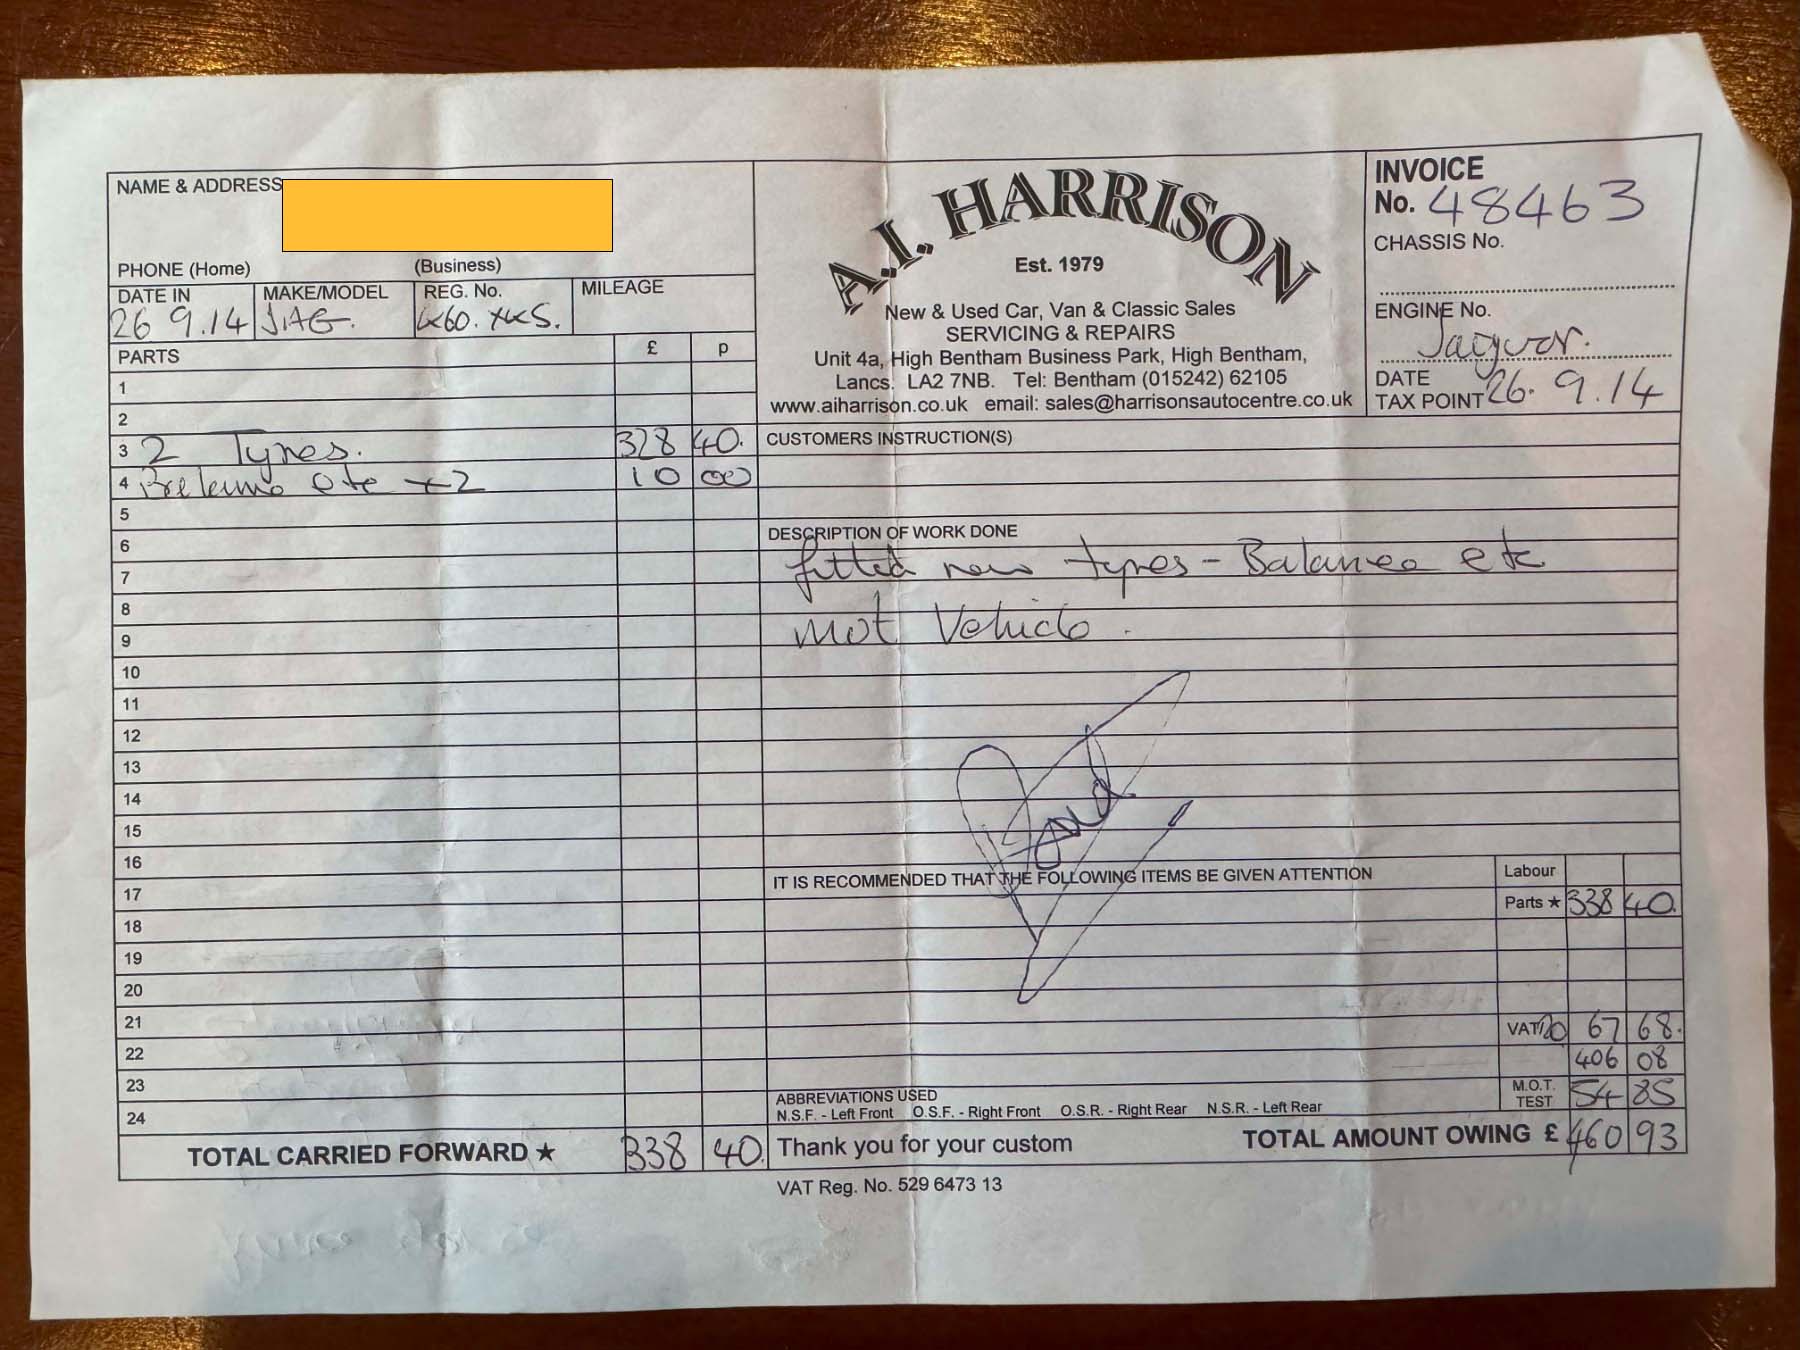 NAME & ADDRESS
PHONE (Home) (Business)
DATE IN MAKE/MODEL REG. No. MILEAGE
26 9.14 JAG.
PARTS £ p
1
2
3 2 Tyres. 328 40.
4 etc 10 00
5
6
7
8
9
10
11
12
13
14
15
16
17
18
19
20
21
22
23
24
TOTAL CARRIED FORWARD ★ 338 40.
A.I. HARRISON
Est. 1979
New & Used Car, Van & Classic Sales
SERVICING & REPAIRS
Unit 4a, High Bentham Business Park, High Bentham,
Lancs. LA2 7NB. Tel: Bentham (015242) 62105
www.aiharrison.co.uk email: sales@harrisonsautocentre.co.uk
INVOICE
No. 48463
CHASSIS No.
ENGINE No.
Jaguar.
DATE
TAX POINT 26. 9.14
CUSTOMERS INSTRUCTION(S)
DESCRIPTION OF WORK DONE
fitted new tyres - Balance etc
mot Vehicle.
Paid
IT IS RECOMMENDED THAT THE FOLLOWING ITEMS BE GIVEN ATTENTION
Labour
Parts ★ 338 40.
VAT 20 67 68.
406 08
M.O.T. TEST 54 85
ABBREVIATIONS USED
N.S.F. - Left Front O.S.F. - Right Front O.S.R. - Right Rear N.S.R. - Left Rear
Thank you for your custom TOTAL AMOUNT OWING £ 460 93
VAT Reg. No. 529 6473 13